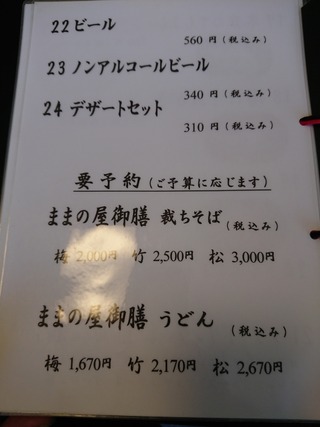 22 ビール
560 円 (税込み)
23 ノンアルコールビール
340 円 (税込み)
24 デザートセット
310 円 (税込み)
要予約 (ご予算に応じます)
ままの屋御膳 裁ちそば (税込み)
梅 2,000円 竹 2,500円 松 3,000円
ままの屋御膳 うどん (税込み)
梅 1,670円 竹 2,170円 松 2,670円